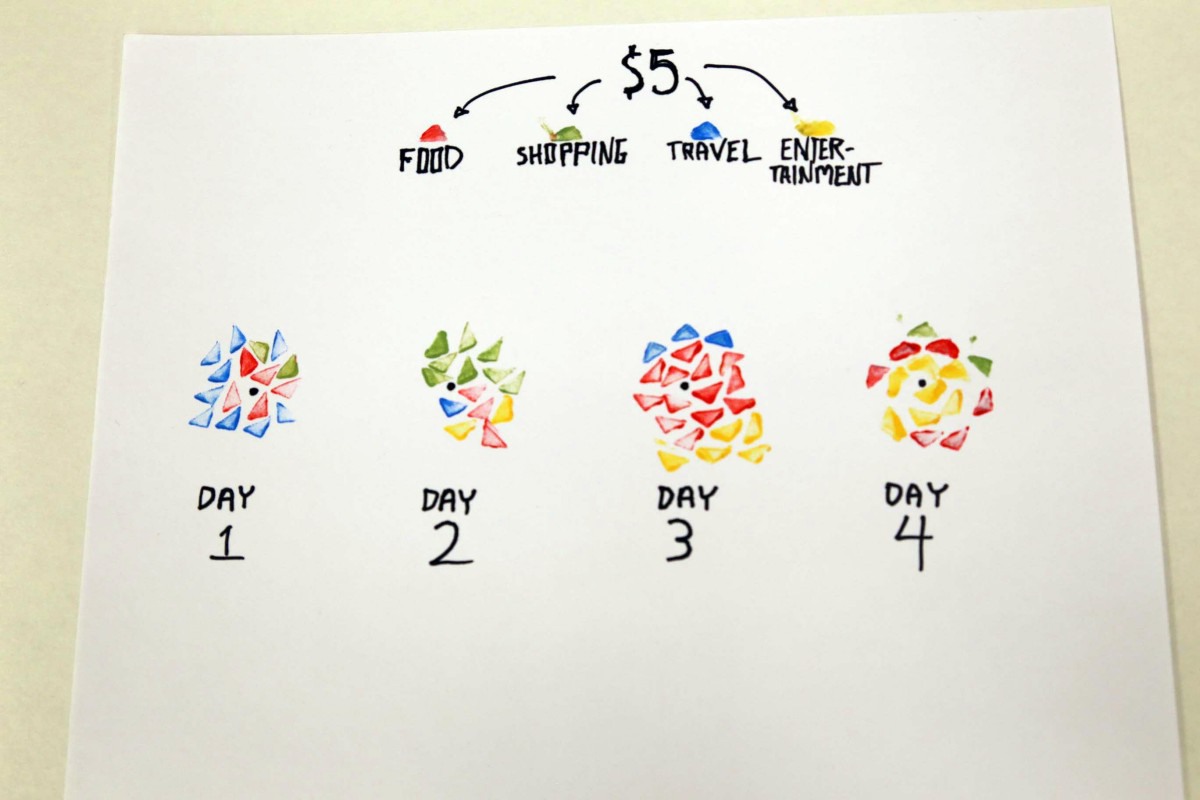 $5
FOOD
SHOPPING
TRAVEL
ENTER-
TAINMENT
DAY
1
DAY
2
DAY
3
DAY
4